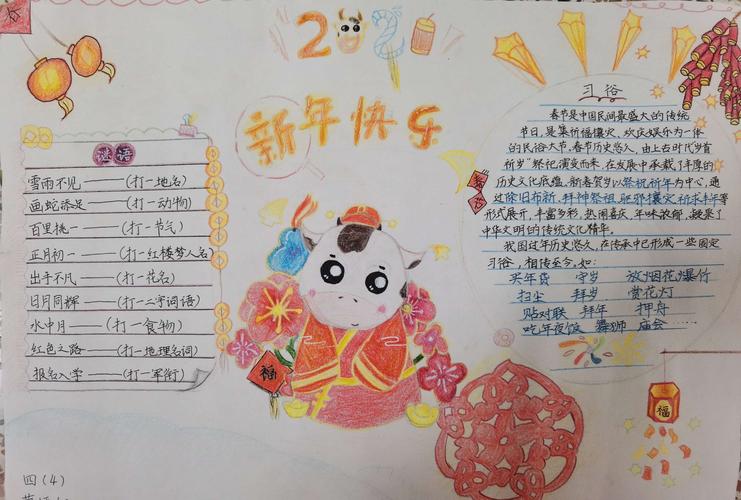 2021
新年快乐
谜语
雪雨不见——(打一地名)
画蛇添足——(打一动物)
百里挑一——(打一节气)
正月初一——(打一红楼梦人名)
出手不凡——(打一花名)
日月同辉——(打一二字词语)
水中月——(打一食物)
红色之路——(打一地理名词)
报名入学——(打一军衔)
福
四(4)
习俗
春节是中国民间最盛大的传统
节日,是集祈福攘灾、欢庆娱乐为一体
的民俗大节。春节历史悠久,由上古时代岁首
祈岁"祭祀演变而来,在发展中承载了丰厚的
历史文化底蕴。新春贺岁以祭祝祈年为中心,通
过除旧布新、拜神祭祖、驱邪攘灾、祈求丰年等
形式展开,丰富多彩,热闹喜庆,年味浓郁,凝聚了
中华文明的传统文化精华。
我国过年历史悠久,在传承中已形成一些固定
习俗,相传至今,如:
买年货 守岁 放烟花爆竹
扫尘 拜岁 赏花灯
贴对联 拜年 押舟
吃年夜饭 舞狮 庙会
福